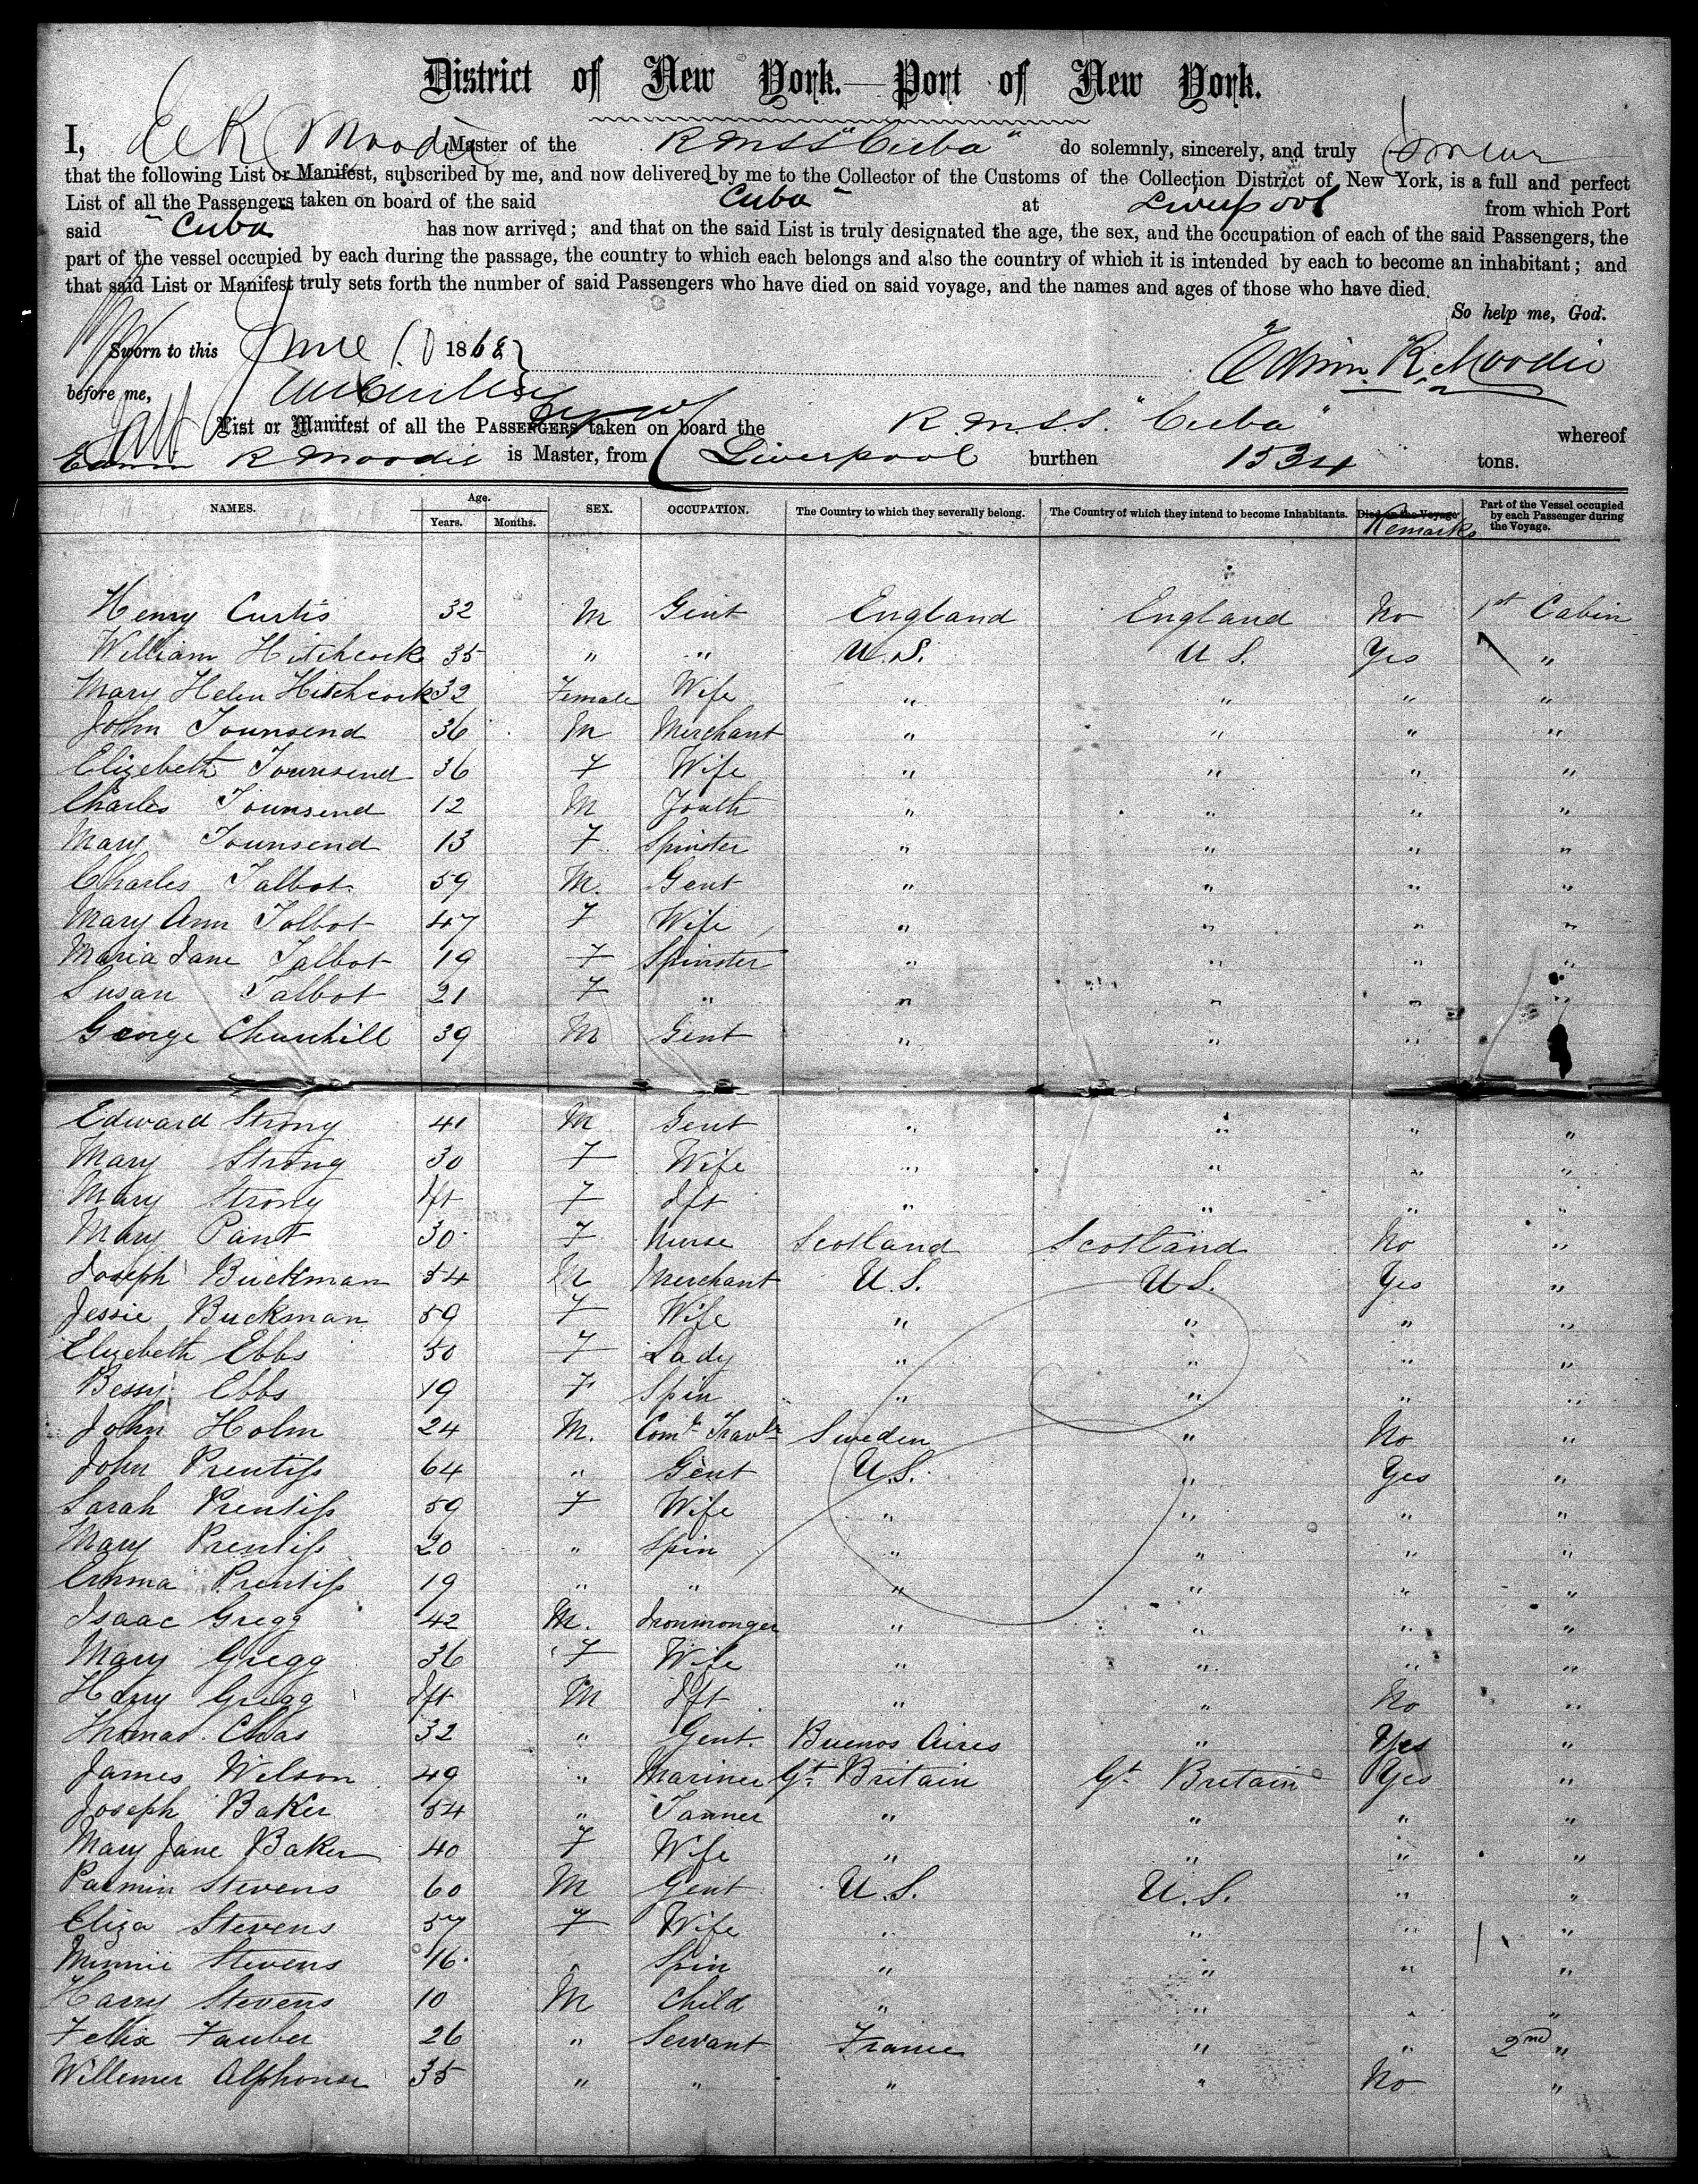 District of New York.—Port of New York.
I, E R Moodie Master of the R M S S "Cuba" do solemnly, sincerely, and truly swear
that the following List or Manifest, subscribed by me, and now delivered by me to the Collector of the Customs of the Collection District of New York, is a full and perfect
List of all the Passengers taken on board of the said "Cuba" at Liverpool from which Port
said "Cuba has now arrived; and that on the said List is truly designated the age, the sex, and the occupation of each of the said Passengers, the
part of the vessel occupied by each during the passage, the country to which each belongs and also the country of which it is intended by each to become an inhabitant; and
that said List or Manifest truly sets forth the number of said Passengers who have died on said voyage, and the names and ages of those who have died.
So help me, God.
Sworn to this June 10 1868
Edwin R. Moodie
before me,
List or Manifest of all the PASSENGERS taken on board the R. M. S. S. "Cuba" whereof
Edwin R Moodie is Master, from Liverpool burthen 1534 tons.
NAMES. Age. Years. Months. SEX. OCCUPATION. The Country to which they severally belong. The Country of which they intend to become Inhabitants. Died on the Voyage Remarks Part of the Vessel occupied by each Passenger during the Voyage.
Henry Curtis 32 M Gent England England No 1st Cabin
William Hitchcock 35 " " U.S. U S. Yes "
Mary Helen Hitchcock 32 Female Wife " " " "
John Townsend 36 M Merchant " " " "
Elizebeth Townsend 36 F Wife " " " "
Charles Townsend 12 M Youth " " " "
Mary Townsend 13 F Spinster " " " "
Charles Talbot 59 M. Gent " " " "
Mary Ann Talbot 47 F Wife " " " "
Maria Jane Talbot 19 F Spinster " " " "
Susan Talbot 21 F " " " " "
George Churchill 39 M Gent " " " "
Edward Strong 41 M Gent " " " "
Mary Strong 30 F Wife " " " "
Mary Strong Ift F Ift " " " "
Mary Pant 30 F Nurse Scotland Scotland No "
Joseph Buckman 54 M Merchant U.S. U.S. Yes "
Jessie Buckman 59 F Wife " " " "
Elizebeth Ebbs 50 F Lady " " " "
Bessy Ebbs 19 F Spin " " " "
John Holm 24 M. Coml Travlr Sweden " No "
John Prentiss 64 " Gent U.S. " Yes "
Sarah Prentiss 59 F Wife " " " "
Mary Prentiss 20 " Spin " " " "
Emma Prentiss 19 " " " " " "
Isaac Gregg 42 M. Ironmonger " " " "
Mary Gregg 36 F Wife " " " "
Harry Gregg Ift M Ift " " No "
Thomas Chas 32 " Gent. Buenos Aires " Yes "
James Wilson 49 " Mariner Gt Britain Gt Britain Yes "
Joseph Baker 54 " Tanner " " " "
Mary Jane Baker 40 F Wife " " " "
Parmin Stevens 60 M Gent U.S. U.S. " "
Eliza Stevens 57 F Wife " " " "
Minnie Stevens 16 " Spin " " " "
Harry Stevens 10 M Child " " " "
Felix Fauber 26 " Servant France " " 2nd "
Willemer Alphonse 35 " " " " No "